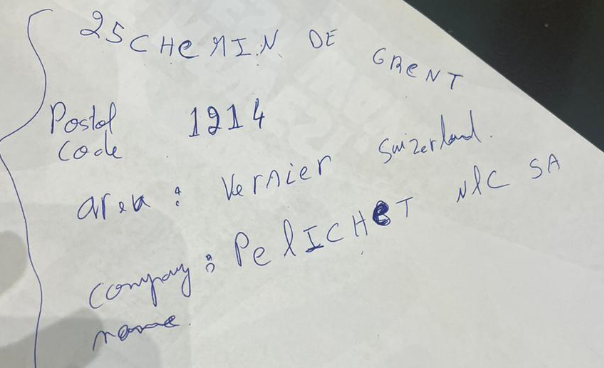 25 CHEMIN DE GRENT
Postal 1214
Code
area : Vernier Swizerland.
Company : PelICHET NLC SA
name